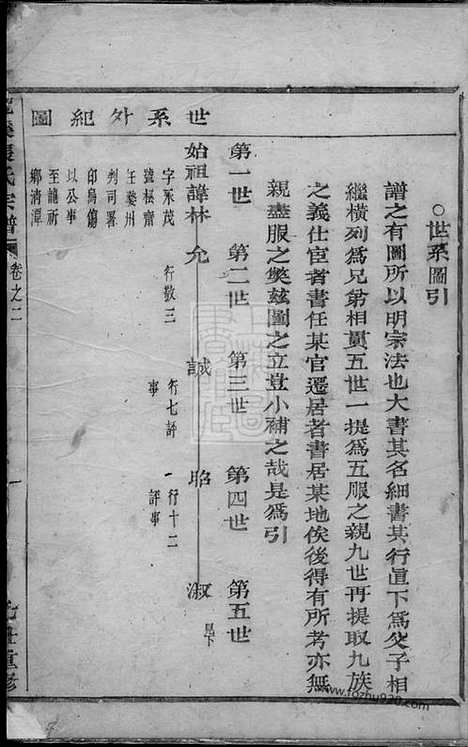 ○世系圖引
譜之有圖所以明宗法也大書其名細書其行直下為父子相
繼橫列為兄弟相貫五世一提為五服之親九世再提取九族
之義仕宦者書任某官遷居者書居某地俟後得有所考亦無
親盡服之獘茲圖之立豈小補之哉是為引
世系外紀圖
第一世
第二世
第三世
第四世
第五世
始祖諱林
允
誠
昭
淑
字永茂
號松齋
任婺州
判司署
印烏傷
以公事
至龍祈
鄉清潭
行敬三
行七評
事
行十二
評事
見下
氏宗譜
卷之二
一
重修
www.fozhu920.com